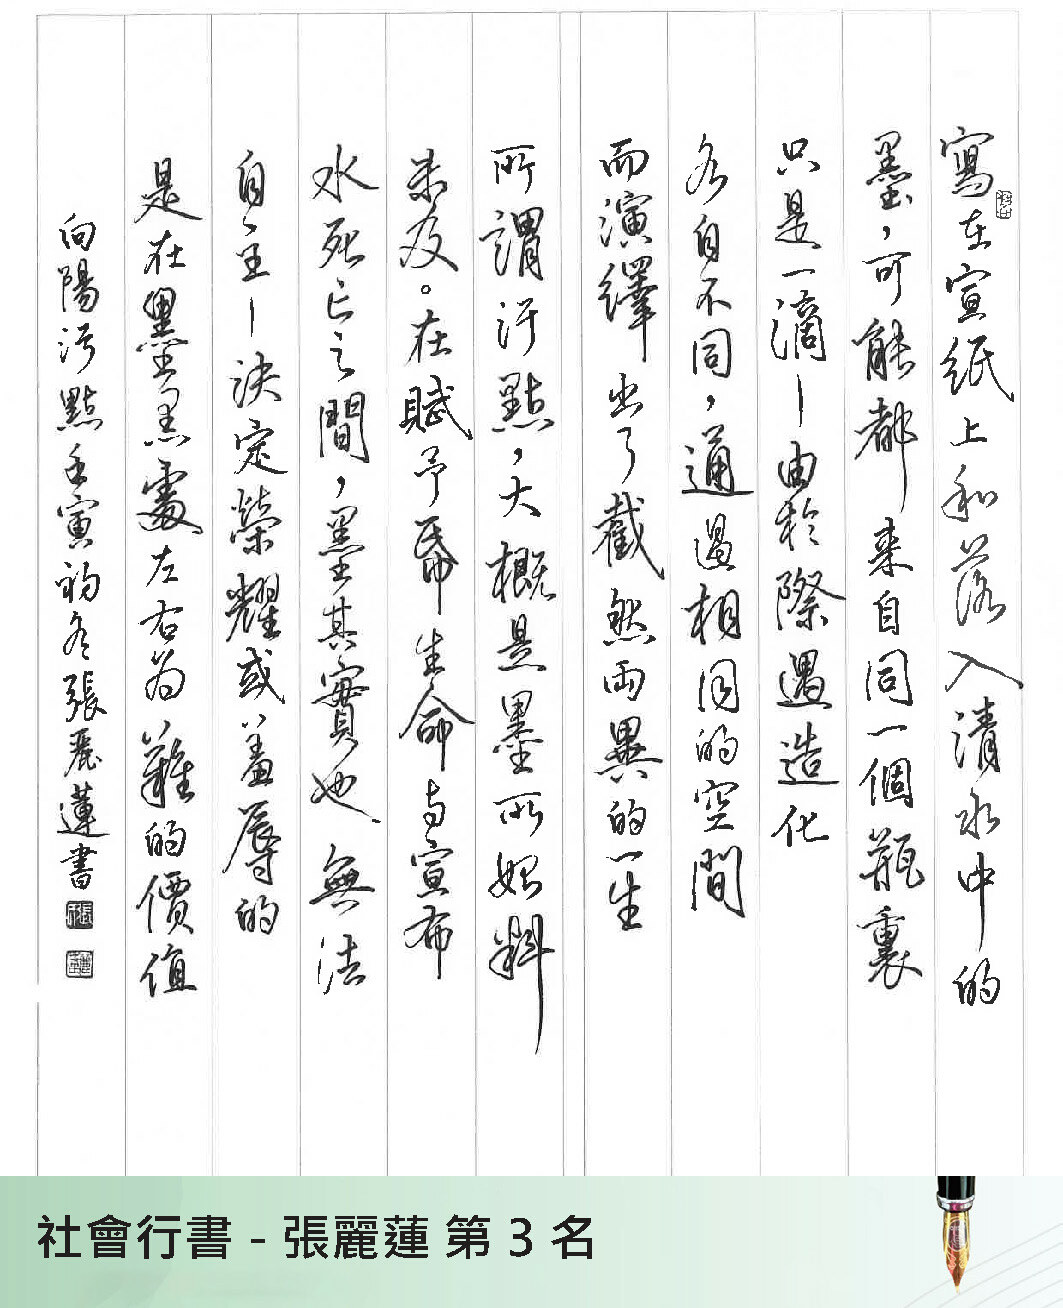 寫在宣紙上和落入清水中的
墨，可能都來自同一個瓶裏
只是一滴—由於際遇造化
各自不同，通過相同的空間
而演繹出了截然兩異的一生
所謂汙點，大概是墨所始料
未及。在賦予帛生命與宣布
水死亡之間，墨其實也無法
自主—決定榮耀或羞辱的
是在墨漬處左右為難的價值
向陽污點壬寅初冬張麗蓮書
社會行書 - 張麗蓮 第 3 名